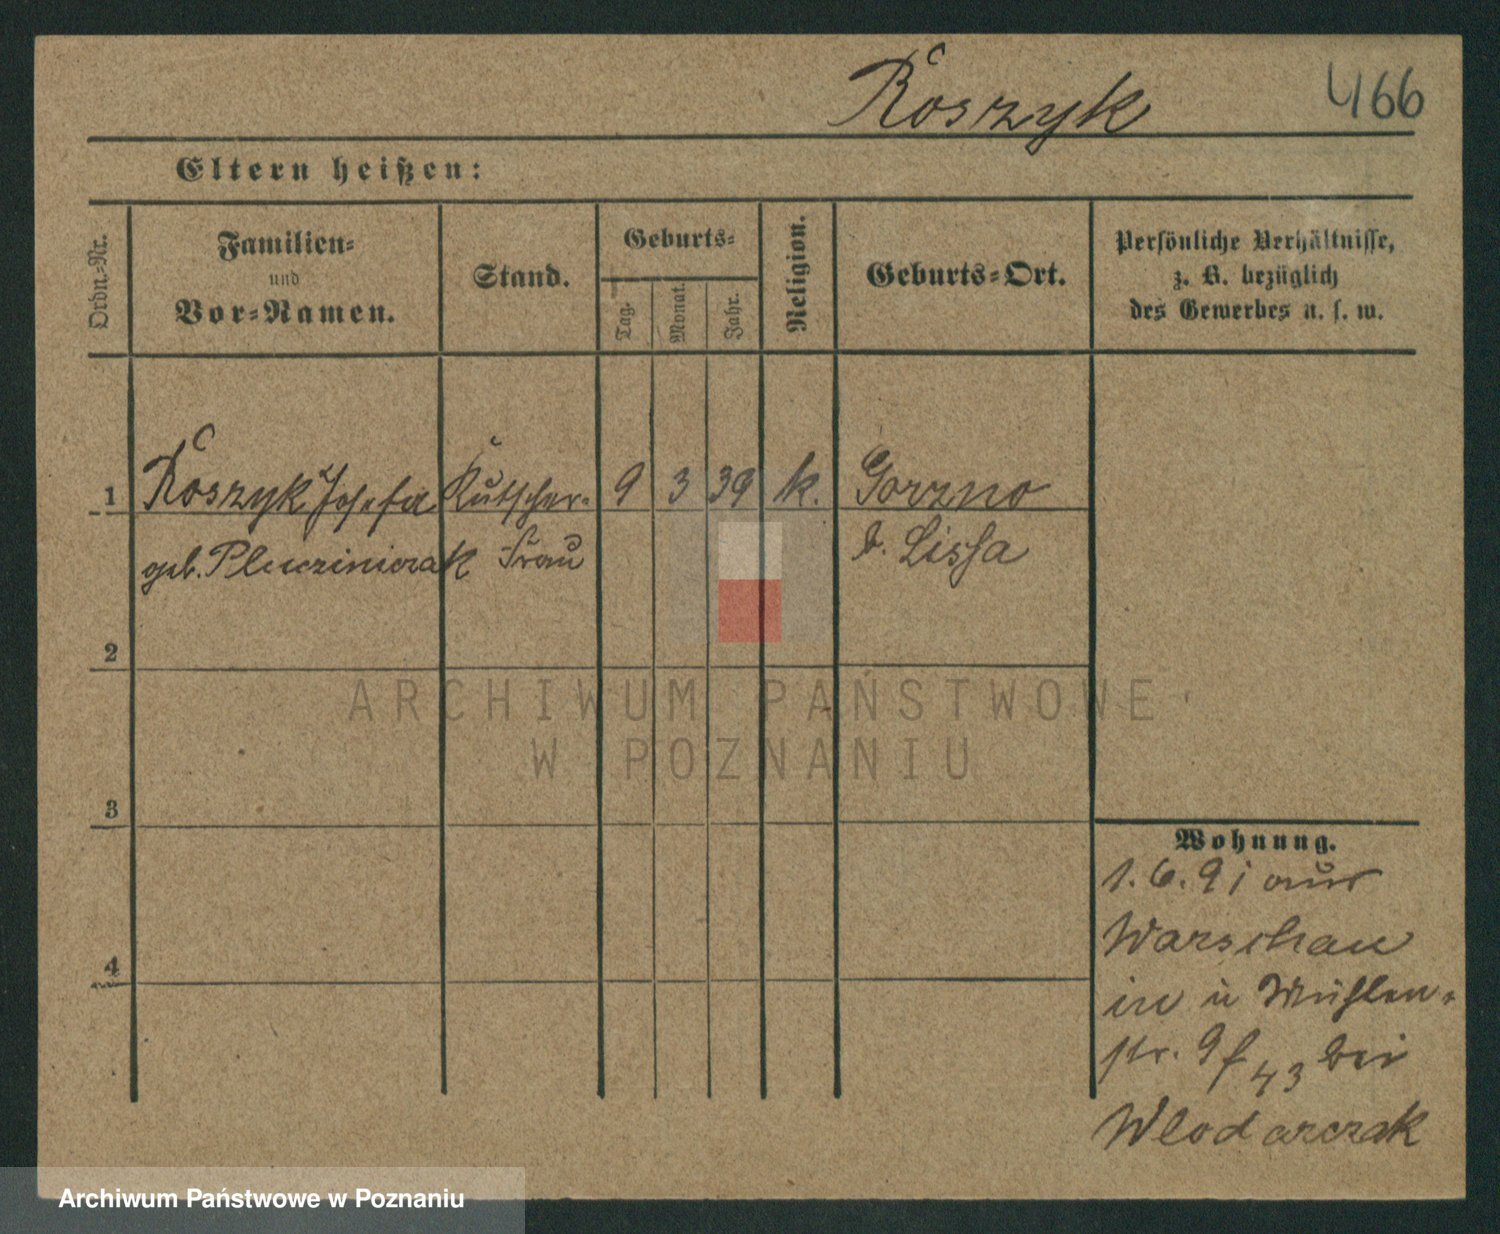 Koszyk 466
Eltern heißen:
Ordn.-Nr.
Familien-
und
Vor-Namen.
Stand.
Geburts-
Tag.
Monat.
Jahr.
Religion.
Geburts-Ort.
Persönliche Verhältnisse,
z. B. bezüglich
des Gewerbes u. s. w.
1 Koszyk Josefa Kutscher- 9 3 39 k. Gorzno
geb. Frau b. Lissa
2
3
4
Wohnung.
1. 6. 91 aus
Warschau
in Mühlen-
str. 9 43 bei
Wlodarczak
ARCHIWUM PAŃSTWOWE
W POZNANIU
Archiwum Państwowe w Poznaniu